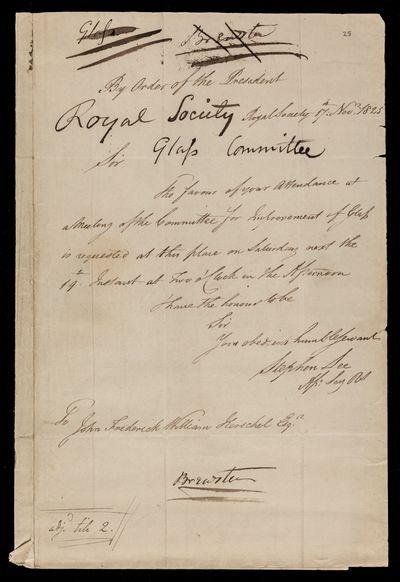 Glass Brewster 25
By Order of the President
Royal Society Royal Society 17th Novr 1825
Glass Committee
Sir
The favour of your Attendance at
a Meeting of the Committee for Improvement of Glass
is requested at this place on Saturday next the
19th Instant at Two o'Clock in the Afternoon
I have the honour to be
Sir
Your obedient humble Servant
Stephen Lee
To
John Frederick William Herschel Esqr
Brewster
adjd till 2.